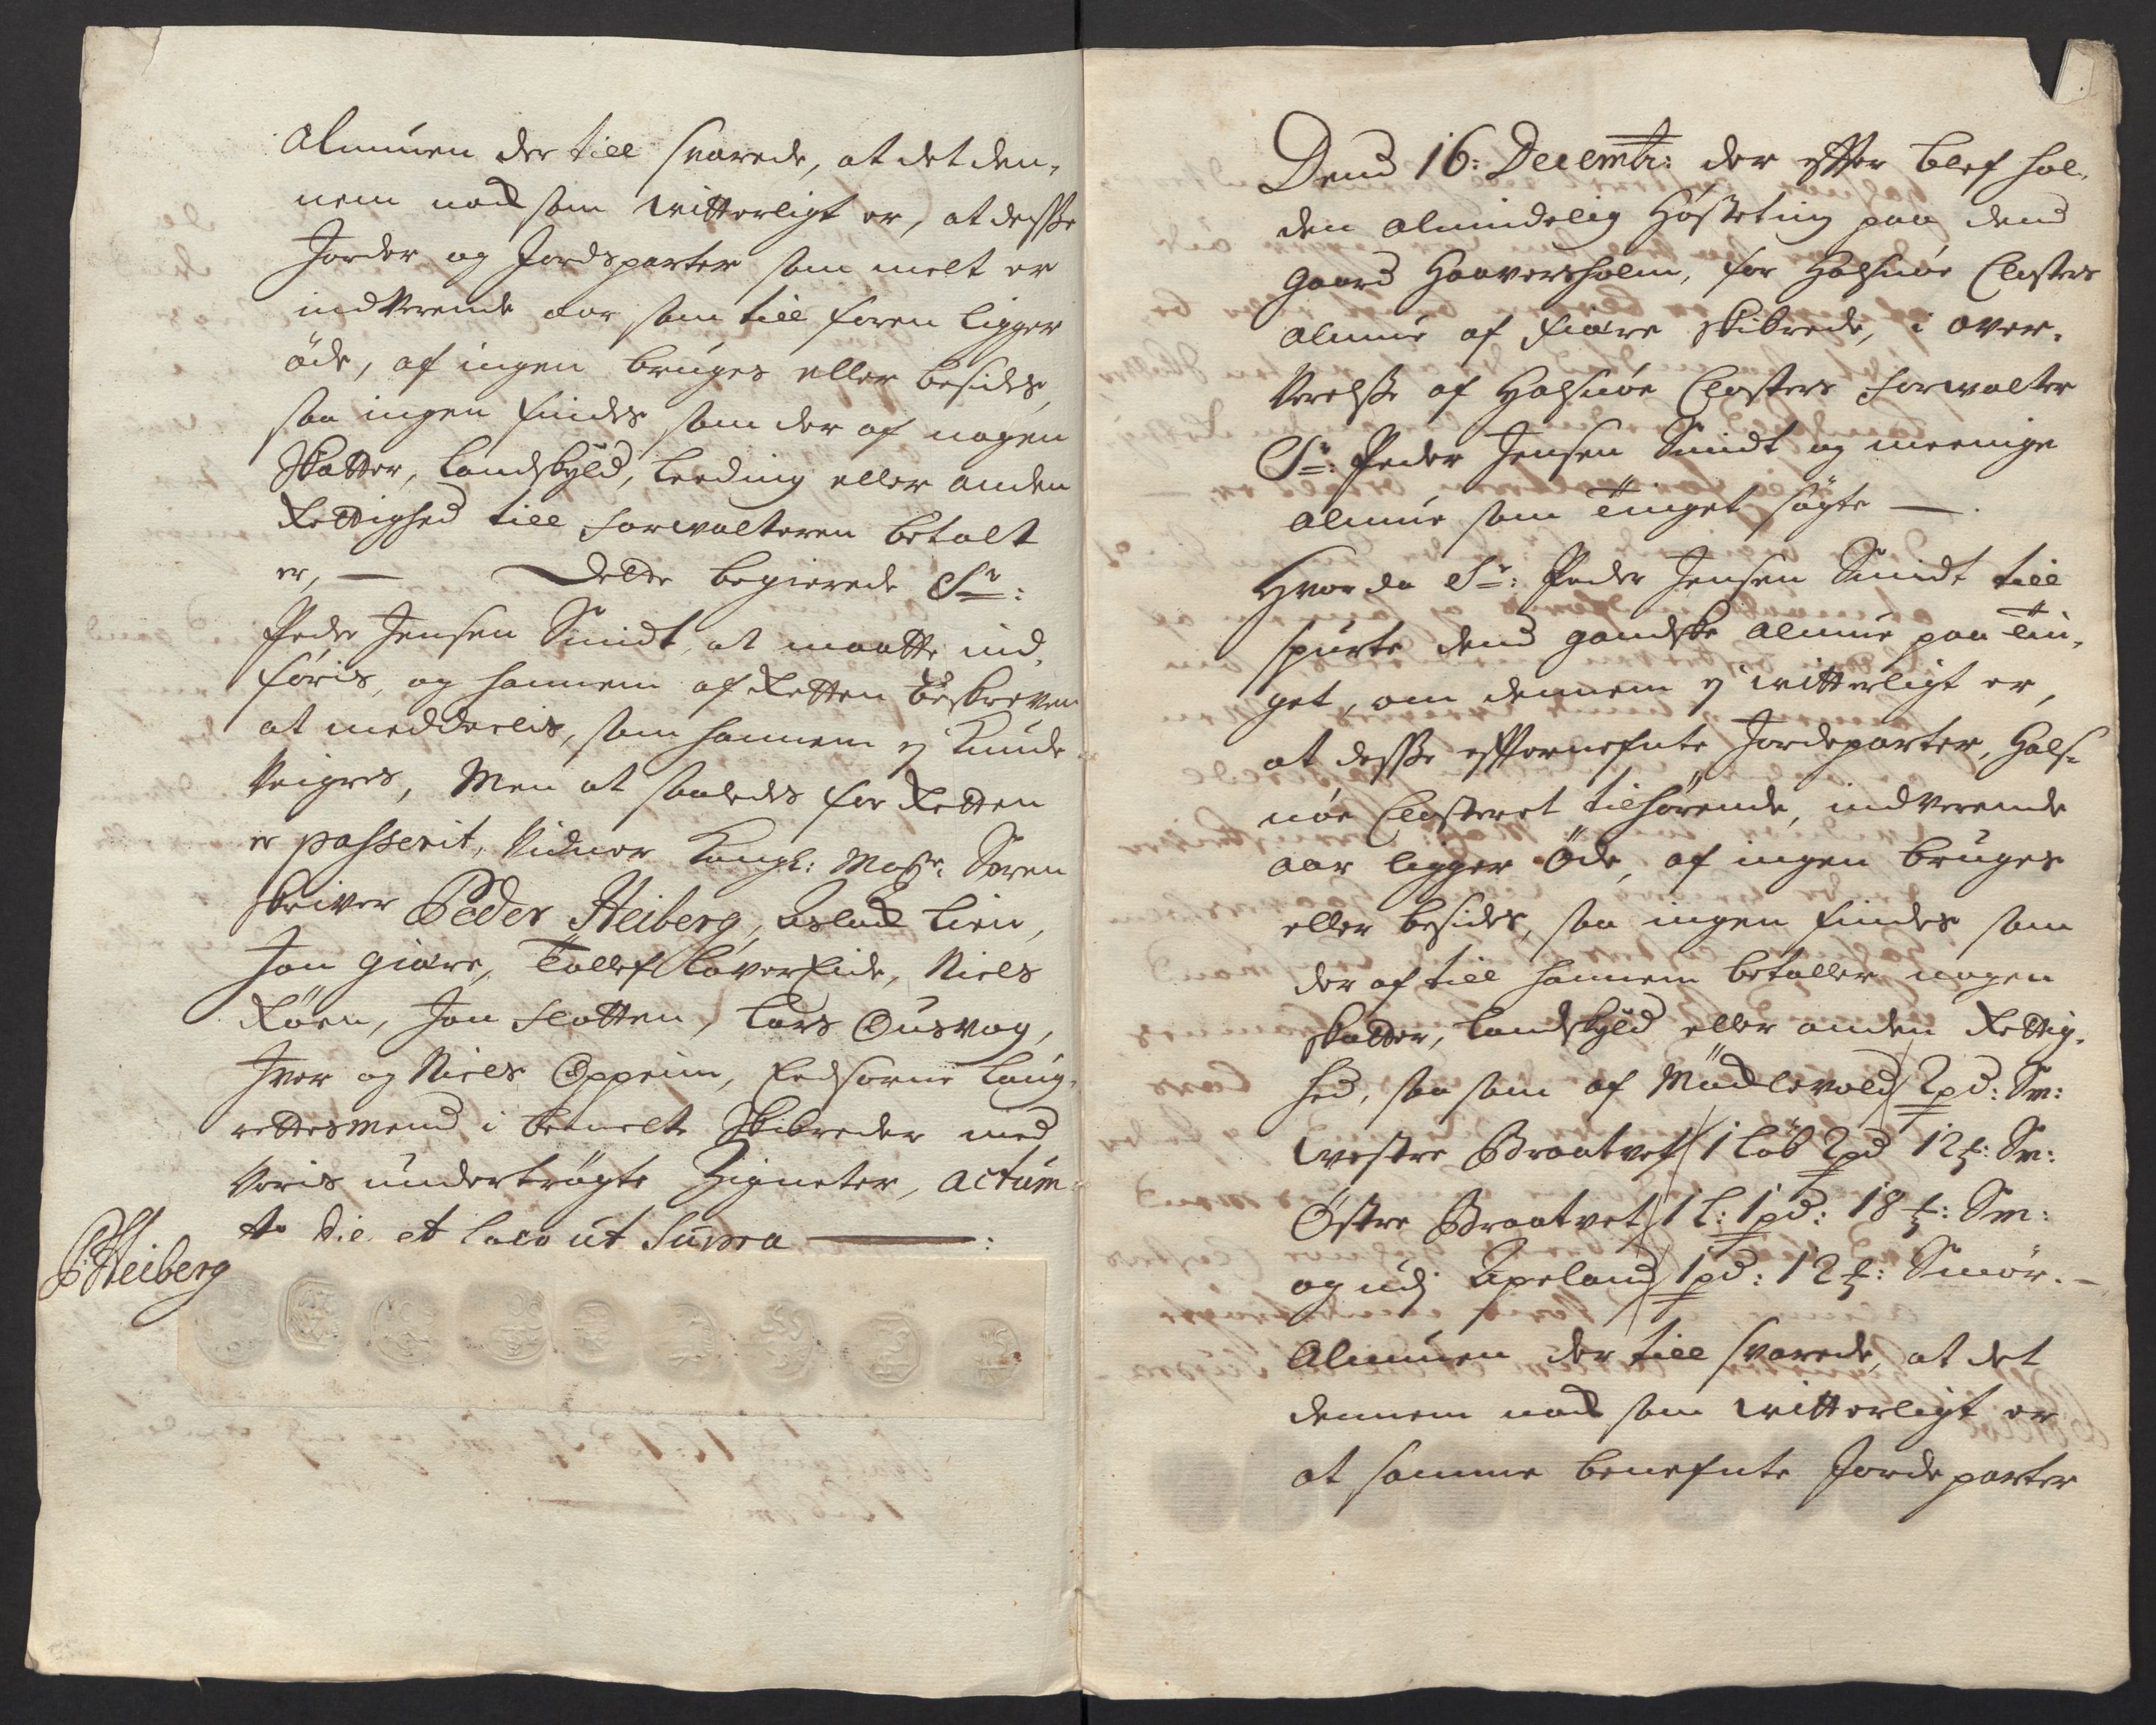 Almuen der till svarede, at det den,
nem nock som witterligt er, at desse
Jorder og Jordsparter som melt er
indverende aar som till foren ligger
öde, af ingen bruges eller besides,
saa ingen findes som der af nogen
Skatter, Landskyld, Leeding eller anden
Rettighed till forwalteren betalt
er, — Dette begierede Sr:
Peder Jensen Smidt, at maatte ind,
föris, og hannem af Retten beskreven
at meddeelis, som hannem ej kunde
veigres, Men at saaledis for Retten
er passerit, vidner Kongl: Mays: Soren
skriver Peder Heiberg, Aslack Lien,
Jon Giære, Tollef Lövereide, Niels
Röen, Jon Flatten, Lars Ousvog,
Iver og Niels Oppeim, Eedsorne Laug,
rettesmend i bemelte Skibreder med
voris undertrögte Zigneter, Actum
Ao Die et loco ut Supra — :
PHeiberg
Dend 16: Decembr: der effter blef hol,
den almindelig Hösteting paa dend
gaard Haaversholm, for Halsnöe Closters
almue af Fiære Skibrede, i over,
værelse af Halsnöe Closters forwalter
Sr: Peder Jensen Smidt og meenige
almue som Tinget sögte — .
Hvor da Sr: Peder Jensen Smidt till
spurte dend gandske almue paa Tin,
get, om dennem ej witterligt er,
at desse effternefnte Jordeparter, Hals,
nöe Closteret tilhörende, indverende
aar ligger Öde, af ingen bruges
eller besides, saa ingen findes som
der af till hannem betaller nogen
skatter, Landskyld eller anden Rettig,
hed, saa som af Mücklevold 2pd: Sm:
westre Braatvet 1 Löb 2pd 12 ℔: Sm:
Östre Braatvet 1 L: 1pd: 18 ℔: Sm:
og udj Apeland 1pd: 12 ℔: Smör. —
Almuen der till svarede, at det
dennem nock som witterligt er
at samme benefnte Jordeparter